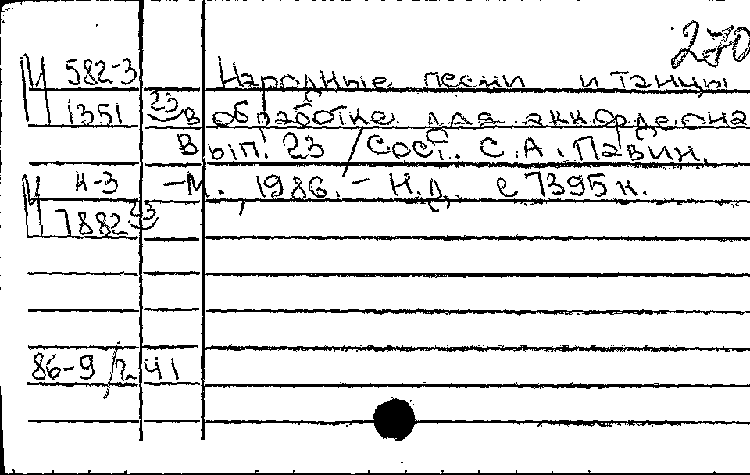 270
М 582-3 Народные песни и танцы
1351 23 в обработке для аккордеона
Вып. 23 / Сост. С.А. Павин.
М Н-3 -М., 1986. - Н.д. с 7395 к.
7882 23
86-9/241